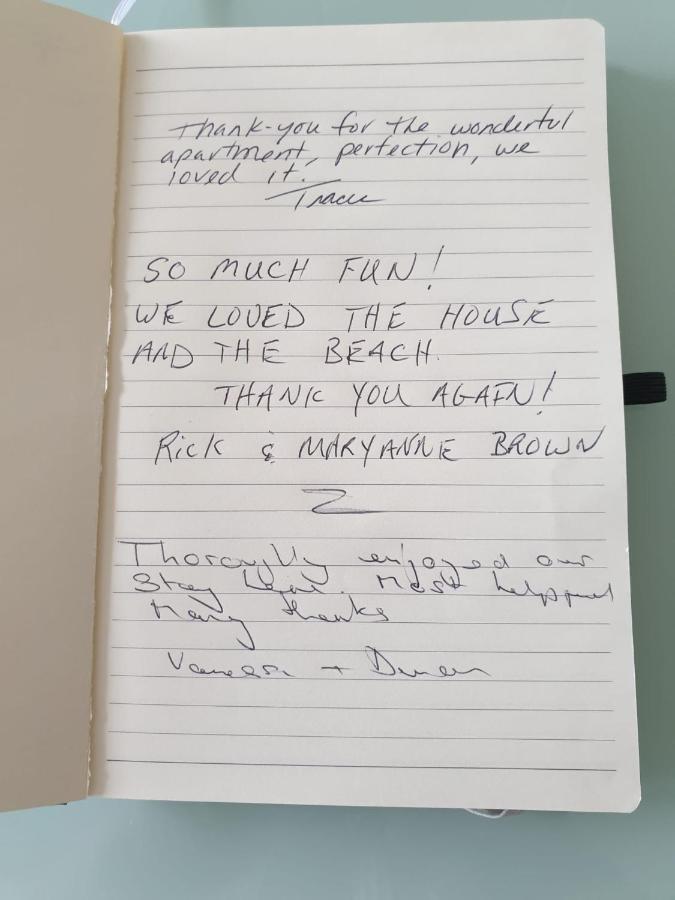 Thank-you for the wonderful
apartment, perfection, we
loved it.
SO MUCH FUN!
WE LOVED THE HOUSE
AND THE BEACH.
THANK YOU AGAIN!
Rick & MARYANNE BROWN
Thoroughly enjoyed our
Stay here. Most helpful
Many thanks
Vanessa +